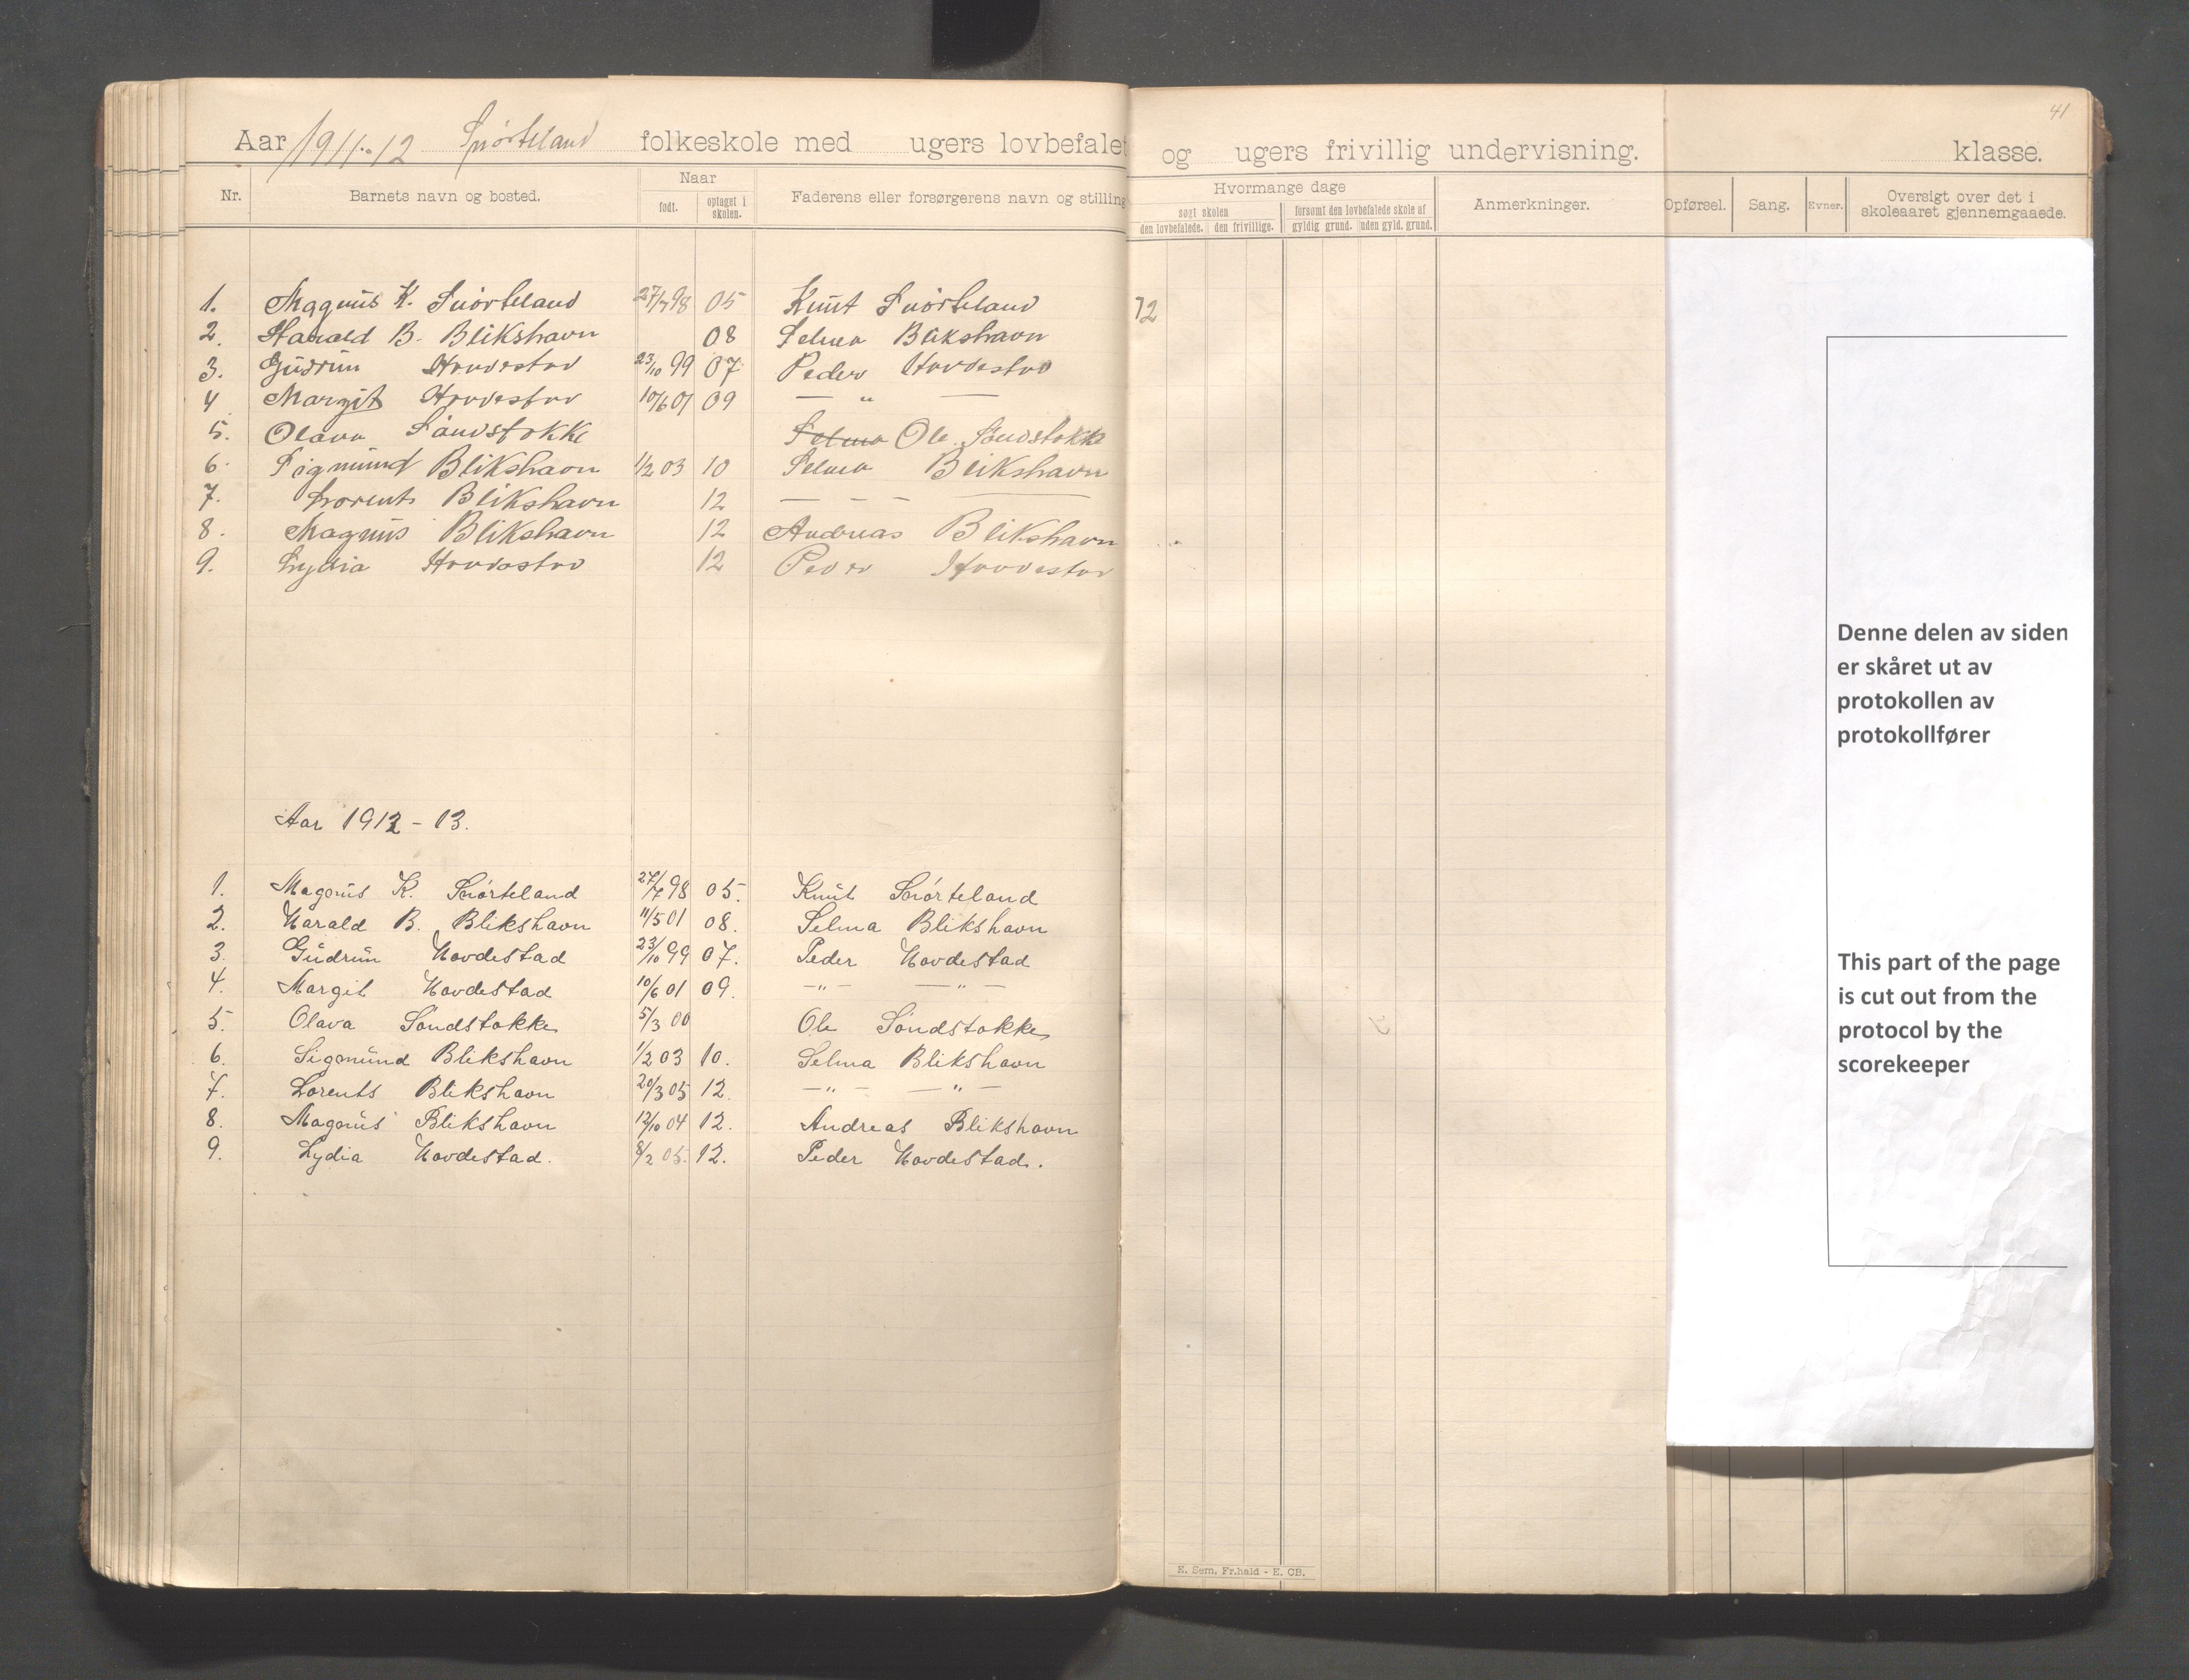 41
Aar 1911-12 Snørteland folkeskole med ugers lovbefalet og ugers frivillig undervisning. klasse.
Nr. Barnets navn og bosted. Naar født. optaget i skolen. Faderens eller forsørgerens navn og stilling Hvormange dage søgt skolen den lovbefalede. den frivillige. forsømt den lovbefalede skole af gyldig grund. uden gyld. grund. Anmerkninger. Opførsel. Sang. Evner. Oversigt over det i skoleaaret gjennemgaaede.
1. Magnus K. Snørteland 27/7 98 05 Knut Snørteland 72
2. Harald B. Blikshavn 08 Selma Blikshavn
3. Gudrun Hovdestad 23/10 99 07 Peder Hovdestad
4 Margit Hovdestad 10/6 01 09 — " —
5. Olava Sandstokke Selma Ole Sandstokke
6. Sigmund Blikshavn 1/2 03 10 Selma Blikshavn
7. Lorents Blikshavn 12 — — — —
8. Magnus Blikshavn 12 Andreas Blikshavn
9. Lydia Hovdestad 12 Peder Hovdestad
Aar 1912 - 13.
1. Magnus K. Snørteland 27/7 98 05. Knut Snørteland
2. Harald B. Blikshavn 11/5 01 08. Selma Blikshavn
3. Gudrun Hovdestad 23/10 99 07. Peder Hovdestad
4. Margit Hovdestad 10/6 01 09. —"— —"—
5. Olava Sandstokke 5/3 00 Ole Sandstokke
6. Sigmund Blikshavn 1/2 03 10. Selma Blikshavn
7. Lorents Blikshavn 20/3 05 12. —"— —"—
8. Magnus Blikshavn 12/10 04 12. Andreas Blikshavn
9. Lydia Hovdestad. 8/2 05. 12. Peder Hovdestad.
E. Sem, Fr.hald - E. CB.
Denne delen av siden
er skåret ut av
protokollen av
protokollfører
This part of the page
is cut out from the
protocol by the
scorekeeper